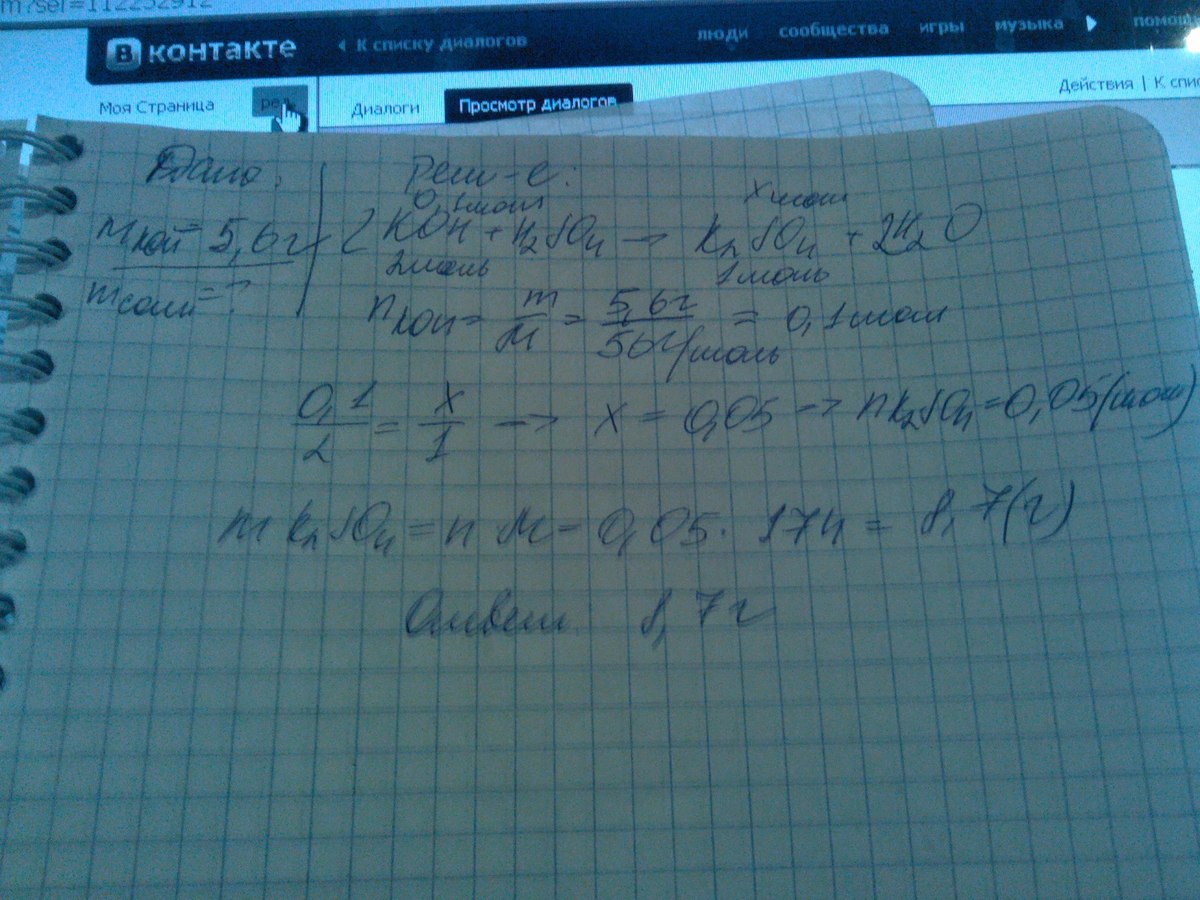 m?sel=112252912
В контакте К списку диалогов люди сообщества игры музыка помощ
Моя Страница ред. Диалоги Просмотр диалогов Действия | К спис
Дано: Реш-е:
0,1моль х моль
mKOH = 5,6г 2KOH + H2SO4 → K2SO4 + 2H2O
2моль 1моль
mсоли = ?
nKOH = m/M = 5,6г/56г/моль = 0,1моль
0,1/2 = x/1 → x = 0,05 → nK2SO4 = 0,05(моль)
mK2SO4 = n M = 0,05 · 174 = 8,7(г)
Ответ 8,7г